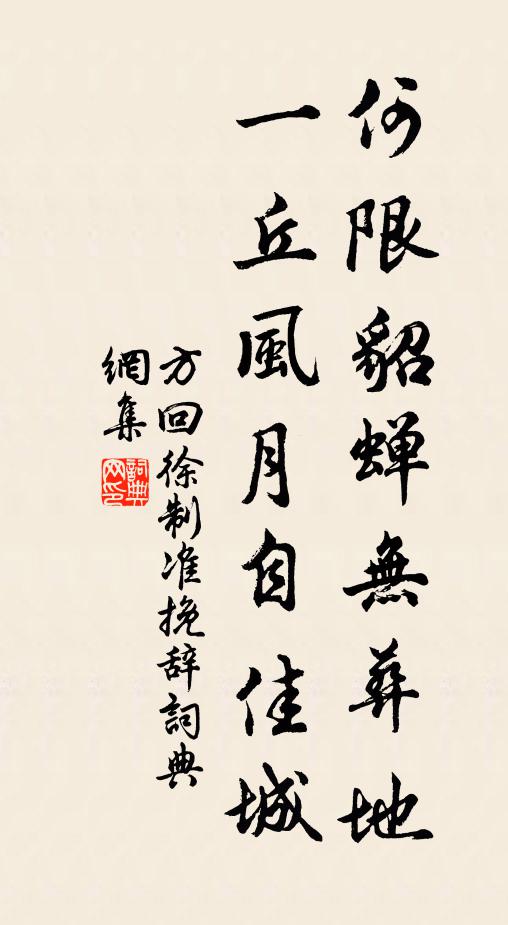 何限貂蝉無葬地
一丘風月自佳城
方回徐制准挽辞詞典
網集
詞典
网印